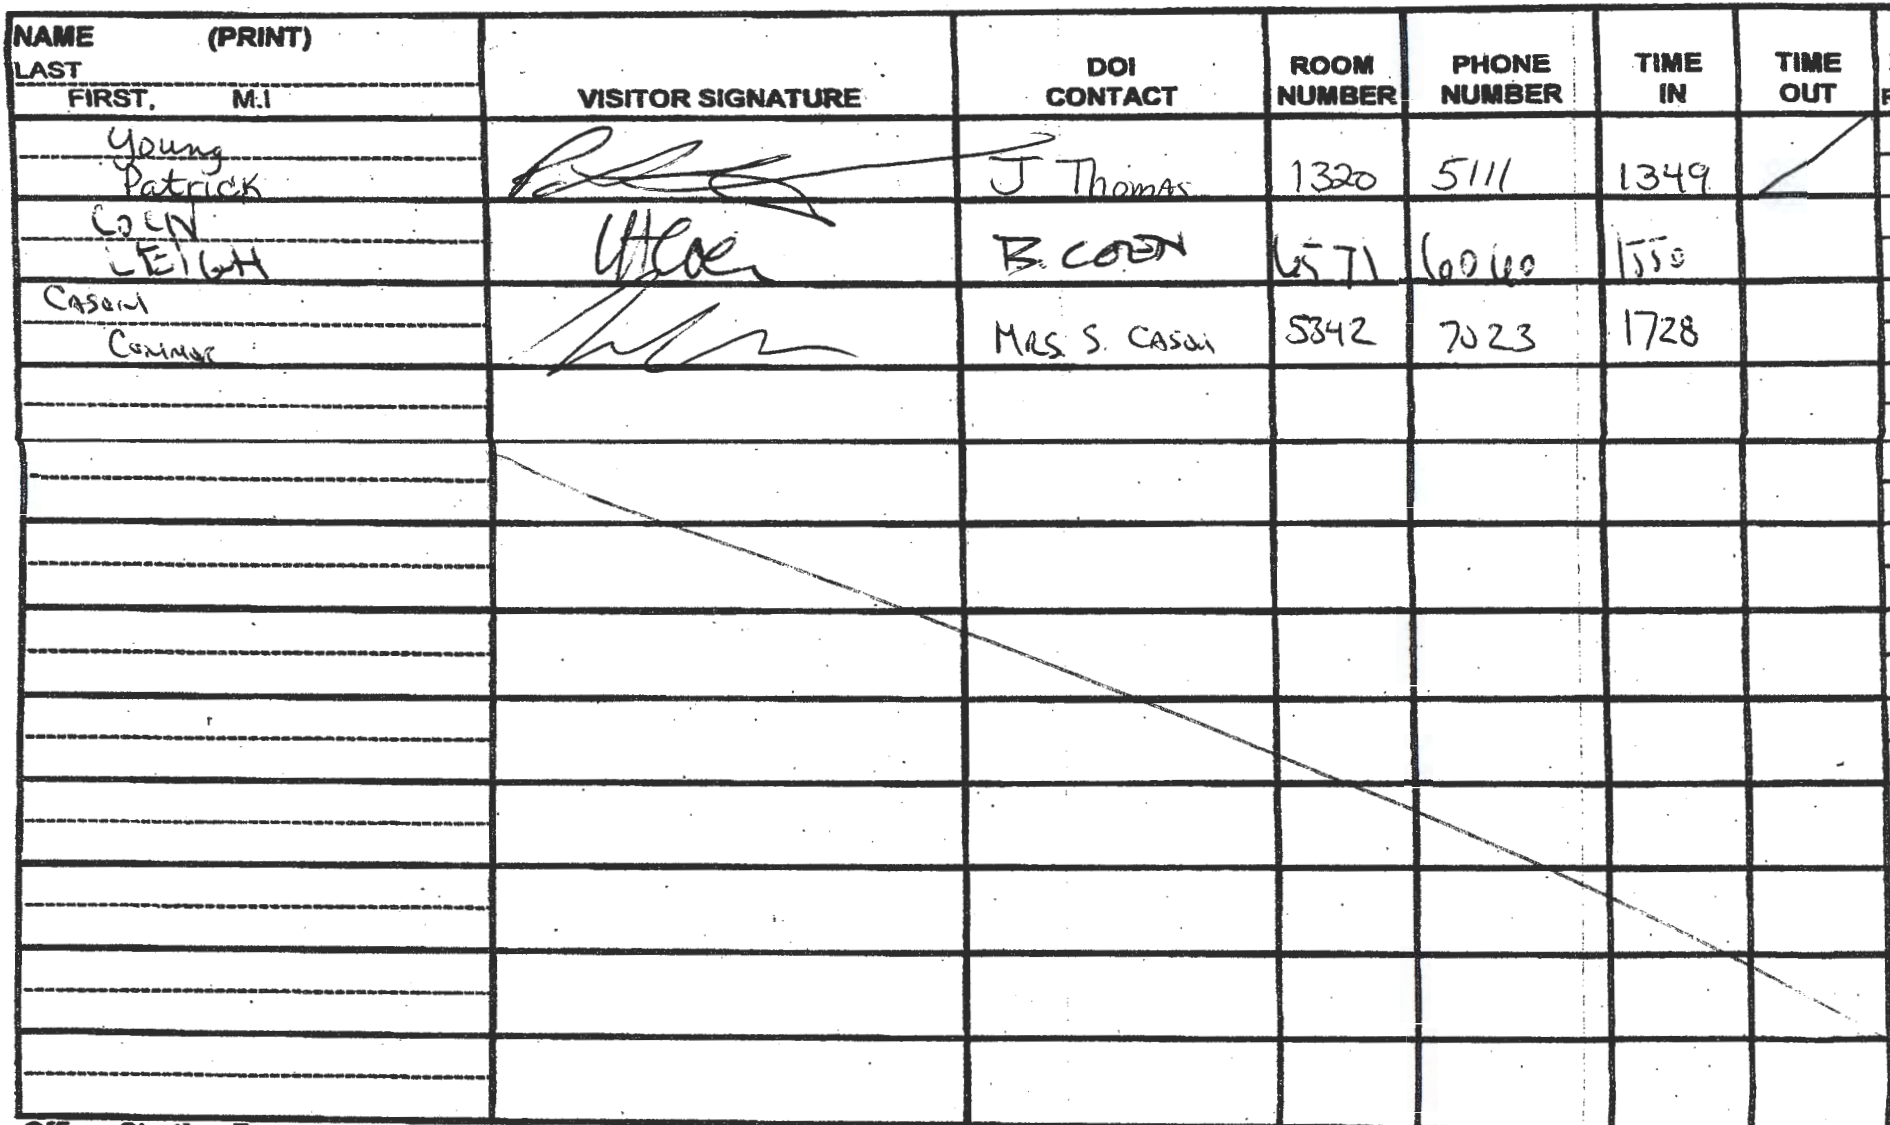 NAME (PRINT)
LAST
FIRST, M.I
VISITOR SIGNATURE
DOI CONTACT
ROOM NUMBER
PHONE NUMBER
TIME IN
TIME OUT
Young
Patrick
J Thomas 1320 5111 1349
LEIGH
B. COEN 6571 6060 1550
Cason
Connor
MRS. S. CASON 5342 7023 1728